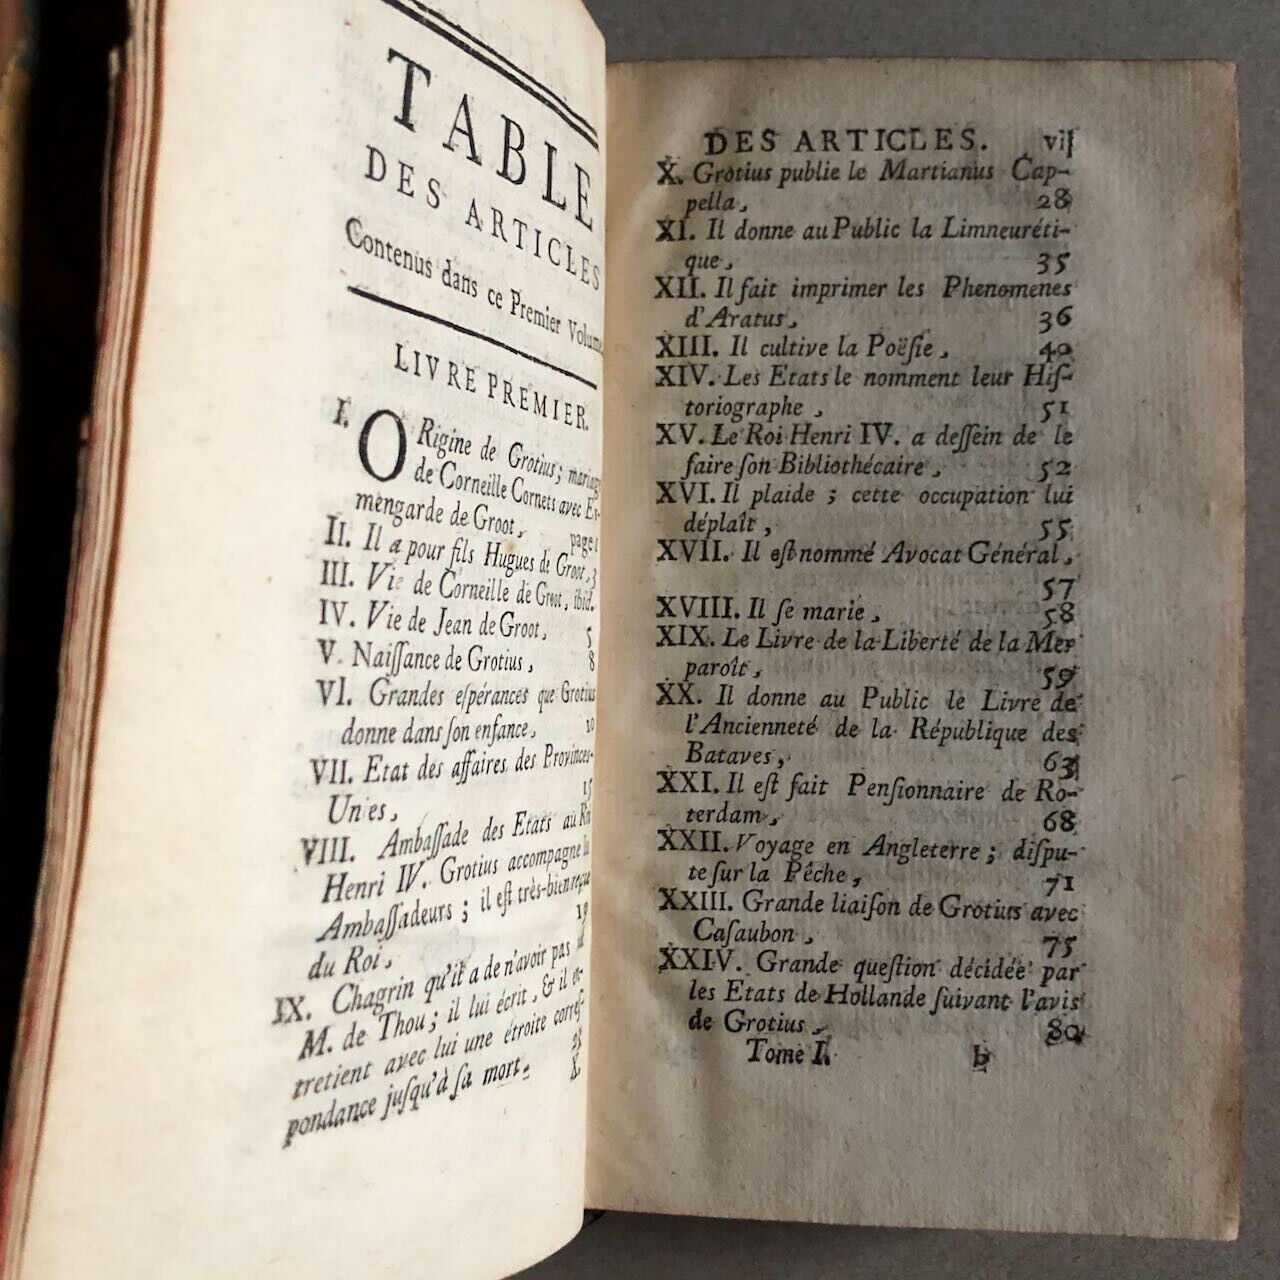 TABLE
DES ARTICLES
Contenus dans ce Premier Volume
LIVRE PREMIER.
I. ORigine de Grotius; mariage
de Corneille Cornets avec Er-
mengarde de Groot, page 1
II. Il a pour fils Hugues de Groot, 3
III. Vie de Corneille de Groot, ibid.
IV. Vie de Jean de Groot, 5
V. Naiſſance de Grotius, 8
VI. Grandes eſpérances que Grotius
donne dans ſon enfance, 10
VII. Etat des affaires des Provinces-
Unies, 15
VIII. Ambaſſade des Etats au Roi
Henri IV. Grotius accompagne les
Ambaſſadeurs; il eſt très-bien reçu
du Roi, 19
IX. Chagrin qu'il a de n'avoir pas
M. de Thou; il lui écrit, & il
tretient avec lui une étroite correſ-
pondance juſqu'à ſa mort. 25
X.
DES ARTICLES. vij
X. Grotius publie le Martianus Cap-
pella, 28
XI. Il donne au Public la Limneuréti-
que, 35
XII. Il fait imprimer les Phenomenes
d'Aratus, 36
XIII. Il cultive la Poëſie, 40
XIV. Les Etats le nomment leur Hiſ-
toriographe, 51
XV. Le Roi Henri IV. a deſſein de le
faire ſon Bibliothécaire, 52
XVI. Il plaide; cette occupation lui
déplaît, 55
XVII. Il eſt nommé Avocat Général,
57
XVIII. Il ſe marie, 58
XIX. Le Livre de la Liberté de la Mer
paroît, 59
XX. Il donne au Public le Livre de
l'Ancienneté de la République des
Bataves, 63
XXI. Il eſt fait Penſionnaire de Ro-
terdam, 68
XXII. Voyage en Angleterre; diſpu-
te ſur la Pêche, 71
XXIII. Grande liaiſon de Grotius avec
Caſaubon, 75
XXIV. Grande queſtion décidée par
les Etats de Hollande ſuivant l'avis
de Grotius, 80
Tome I. b